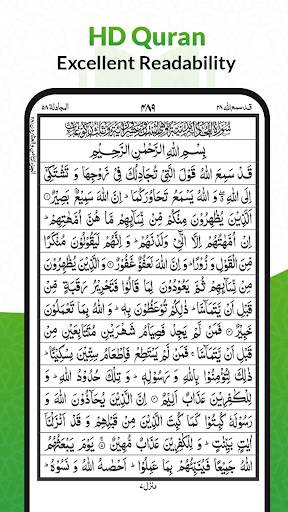 HD Quran
Excellent Readability
قد سمع الله ٢٨
٤٨٩
المجادلة ٥٨
بِسْمِ اللهِ الرَّحْمٰنِ الرَّحِيْمِ
قَدْ سَمِعَ اللهُ قَوْلَ الَّتِيْ تُجَادِلُكَ فِيْ زَوْجِهَا وَ تَشْتَكِيْۤ
اِلَى اللهِ ۖ وَ اللهُ يَسْمَعُ تَحَاوُرَكُمَا ؕ اِنَّ اللهَ سَمِيْعٌۢ بَصِيْرٌ ۝
اَلَّذِيْنَ يُظٰهِرُوْنَ مِنْكُمْ مِّنْ نِّسَآئِهِمْ مَّا هُنَّ اُمَّهٰتِهِمْ ؕ
اِنْ اُمَّهٰتُهُمْ اِلَّا الّٰٓـِٔيْ وَلَدْنَهُمْ ؕ وَ اِنَّهُمْ لَيَقُوْلُوْنَ مُنْكَرًا
مِّنَ الْقَوْلِ وَ زُوْرًا ؕ وَ اِنَّ اللهَ لَعَفُوٌّ غَفُوْرٌ ۝ وَ الَّذِيْنَ يُظٰهِرُوْنَ
مِنْ نِّسَآئِهِمْ ثُمَّ يَعُوْدُوْنَ لِمَا قَالُوْا فَتَحْرِيْرُ رَقَبَةٍ مِّنْ
قَبْلِ اَنْ يَّتَمَآسَّا ؕ ذٰلِكُمْ تُوْعَظُوْنَ بِهٖ ؕ وَ اللهُ بِمَا تَعْمَلُوْنَ
خَبِيْرٌ ۝ فَمَنْ لَّمْ يَجِدْ فَصِيَامُ شَهْرَيْنِ مُتَتَابِعَيْنِ مِنْ
قَبْلِ اَنْ يَّتَمَآسَّا ۚ فَمَنْ لَّمْ يَسْتَطِعْ فَاِطْعَامُ سِتِّيْنَ مِسْكِيْنًا ؕ
ذٰلِكَ لِتُؤْمِنُوْا بِاللهِ وَ رَسُوْلِهٖ ؕ وَ تِلْكَ حُدُوْدُ اللهِ ؕ وَ
لِلْكٰفِرِيْنَ عَذَابٌ اَلِيْمٌ ۝ اِنَّ الَّذِيْنَ يُحَآدُّوْنَ اللهَ وَ
رَسُوْلَهٗ كُبِتُوْا كَمَا كُبِتَ الَّذِيْنَ مِنْ قَبْلِهِمْ وَ قَدْ اَنْزَلْنَاۤ
اٰيٰتٍۭ بَيِّنٰتٍ ؕ وَ لِلْكٰفِرِيْنَ عَذَابٌ مُّهِيْنٌ ۝ يَوْمَ يَبْعَثُهُمُ
اللهُ جَمِيْعًا فَيُنَبِّئُهُمْ بِمَا عَمِلُوْا ؕ اَحْصٰىهُ اللهُ وَ نَسُوْهُ ؕ
منزل ٧